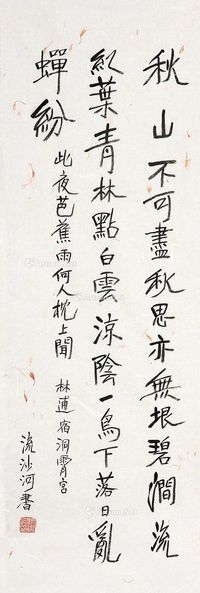 秋山不可盡秋思亦無垠碧澗流
紅葉青林點白雲涼陰一鳥下落日亂
蟬紛此夜芭蕉雨何人枕上聞林逋宿洞霄宮
流沙河書